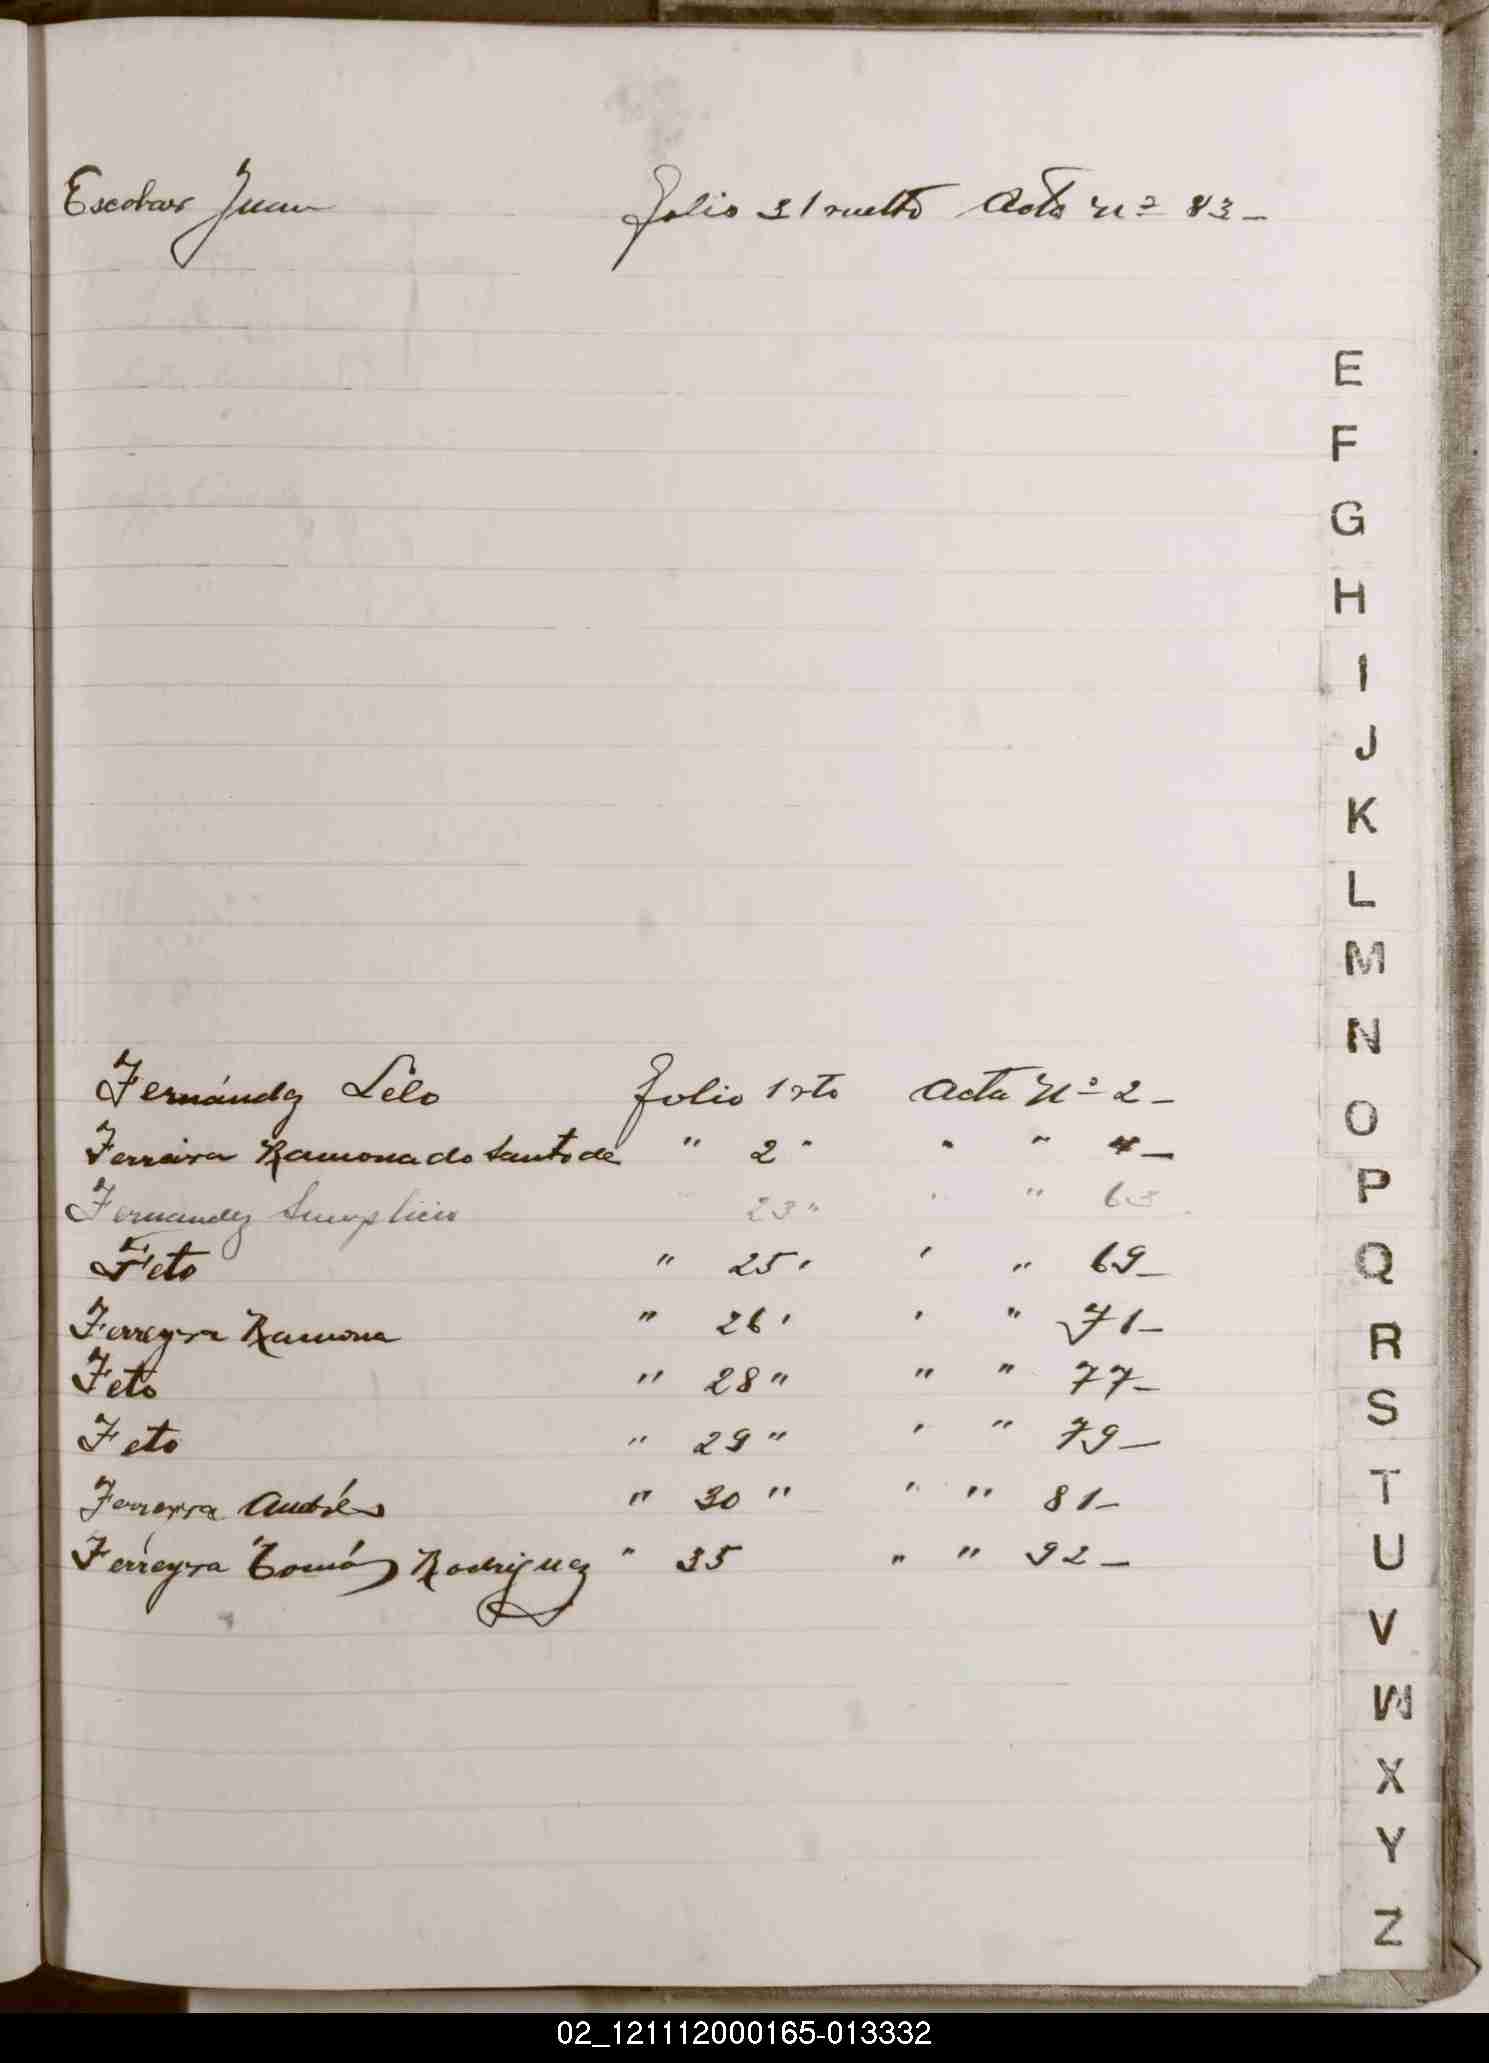 Escobar Juan folio 31 vuelto Acta Nº 83-
E
F
G
H
I
J
K
L
M
N
O
P
Q
R
S
T
U
V
W
X
Y
Z
Fernández Lelo folio 1 vto Acta Nº 2-
Ferreira Ramona do Santo de " 2 " " " 4-
Fernandez Simplicio " 23 " " " 63
Feto " 25 " " " 69-
Ferreyra Ramona " 26 " " " 71-
Feto " 28 " " " 77-
Feto " 29 " " " 79-
Ferreyra Andrés " 30 " " " 81-
Ferreyra Tomás Rodriguez " 35 " " 92-
02_121112000165-013332